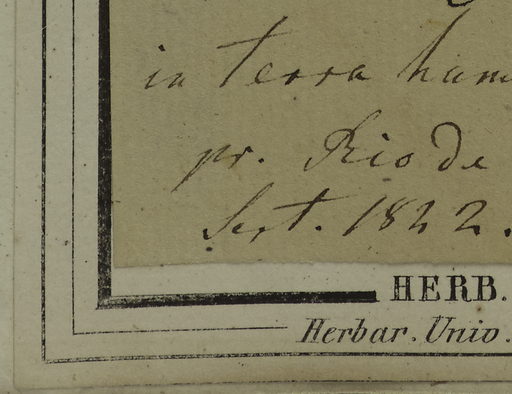 in terra hum
pr. Rio de
Sept. 1822.
HERB.
Herbar. Univ.